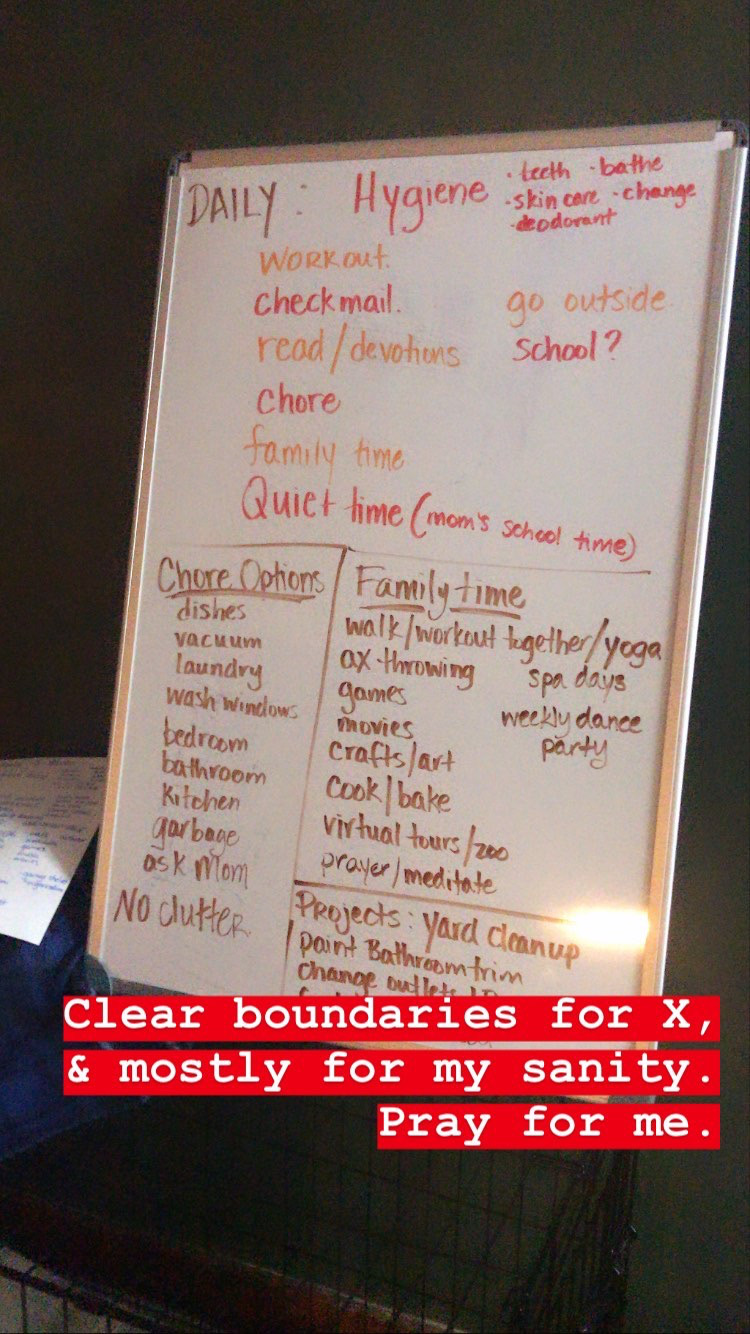 DAILY: Hygiene · teeth · bathe
· skin care · change
· deodorant
WORKout.
check mail. go outside
read/devotions school?
chore
family time
Quiet time (mom's school time)
Chore Options
dishes
vacuum
laundry
wash windows
bedroom
bathroom
kitchen
garbage
ask Mom
NO clutter.
Family time
walk/workout together/yoga
ax-throwing spa days
games
movies weekly dance
party
crafts/art
Cook/bake
virtual tours/zoo
prayer/meditate
Projects: Yard cleanup
paint Bathroom trim
change outlets
Clear boundaries for X,
& mostly for my sanity.
Pray for me.